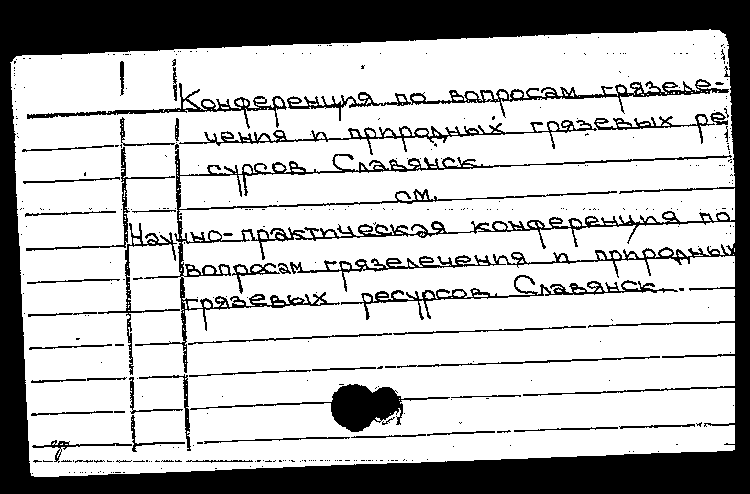 Конференция по вопросам грязеле-
чения и природных грязевых ре
сурсов. Славянск.
см.
Научно-практическая конференция по
вопросам грязелечения и природных
грязевых ресурсов. Славянск.